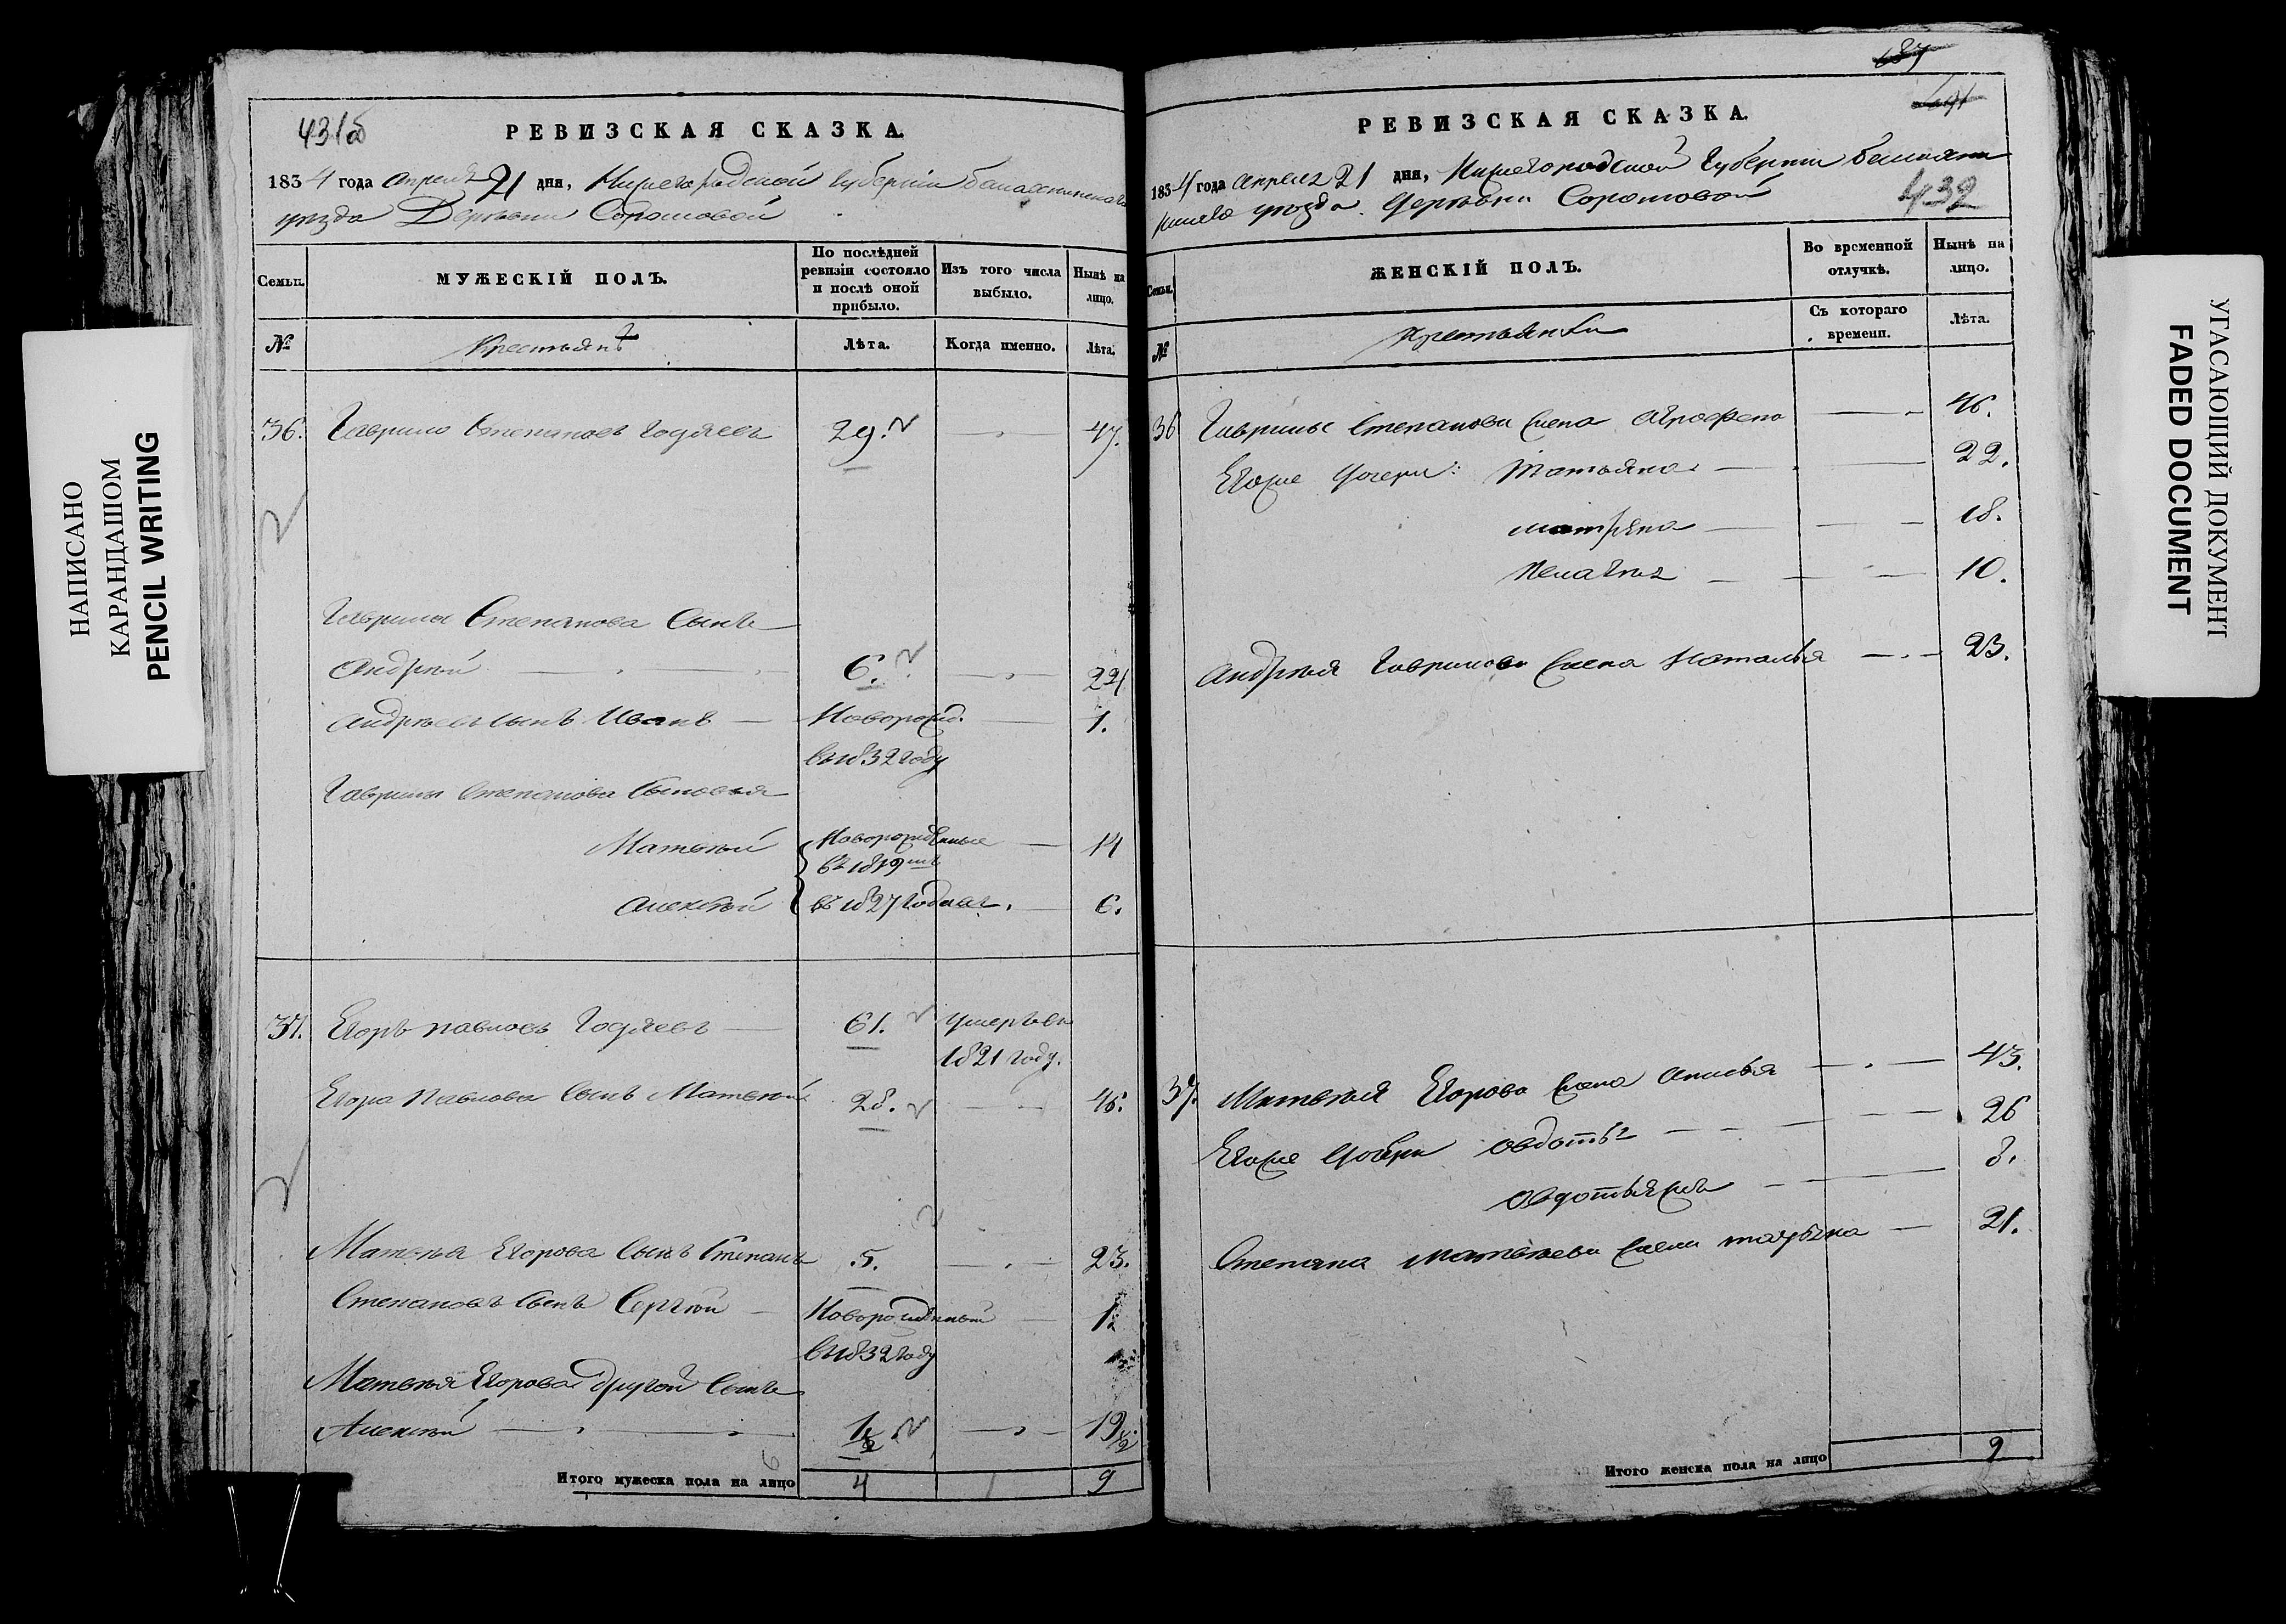 НАПИСАНО
КАРАНДАШОМ
PENCIL WRITING
431об
РЕВИЗСКАЯ СКАЗКА.
1834 года апреля 21 дня, Нижегородской губернiи балахнинскаго
уезда Деревни
Семьи.
МУЖЕСКIЙ ПОЛЪ.
По послѣдней ревизiи состояло и послѣ оной прибыло.
Изъ того числа выбыло.
Нынѣ на лицо.
№
Крестьянѣ
Лѣта.
Когда именно.
Лѣта.
36. Гаврило Степановъ 29. 47.
Гаврилы Степанова Сынъ
Андрѣй 6. 24
Андрѣевъ сынъ Иванъ Новорожд. 1.
въ 1832 году
Гаврилы Степанова Сыновья
Матвѣй Новорожденные 14
въ 1819мъ
Алексѣй въ 1827 годахъ. 6.
37. Егоръ Павловъ 61. умеръ въ
1821 году.
Егора Павлова Сынъ Матвѣй 28. 46.
Матвѣя Егорова Сынъ Степанъ 5. 23.
Степановъ Сынъ Сергѣй Новорожденный 1½
въ 1832 году
Матвѣя Егорова другой Сынъ
Алексѣй 1½ 19½
6
Итого мужеска пола на лицо 4 1 9
637
432
РЕВИЗСКАЯ СКАЗКА.
1834 года Апреля 21 дня, Нижегородской Губернiи балахни
нскаго уезда. Деревни
Семьи.
ЖЕНСКIЙ ПОЛЪ.
Во временной отлучкѣ.
Нынѣ на лицо.
№
Крестьянки
Съ котораго времени.
Лѣта.
36 Гаврилы Степанова жена Аграфена 46.
Егоже дочери: Татьяна 22.
Матрена 18.
Пелагея 10.
Андрѣя Гаврилова жена Наталья 23.
37. Матвѣя Егорова жена 43.
Егоже дочери Овдотья 26
8.
Степана Матвѣева жена 21.
Итого женска пола на лицо 9
УГАСАЮЩИЙ ДОКУМЕНТ
FADED DOCUMENT